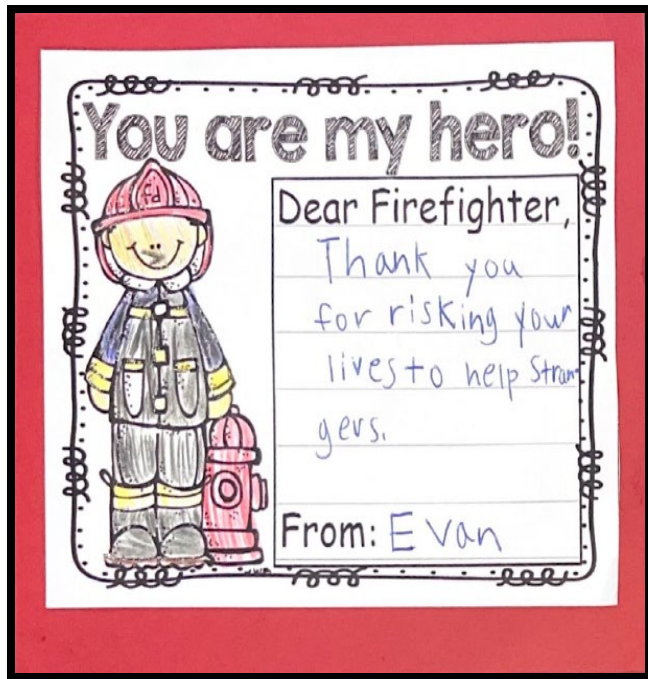 You are my hero!
fd
Dear Firefighter,
Thank you
for risking your
lives to help Stran
gers.
From: Evan